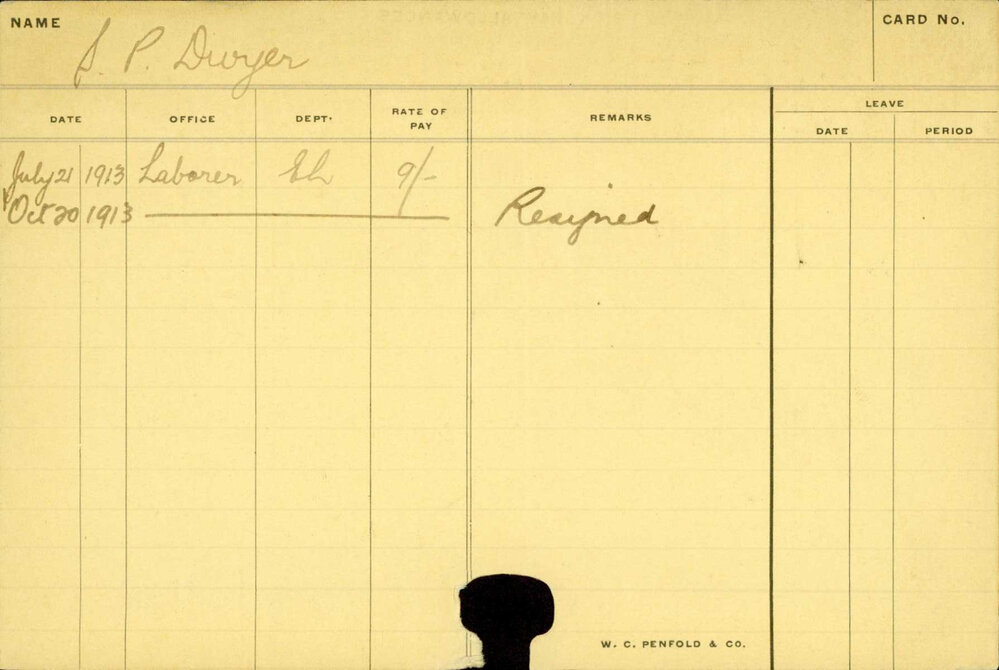 NAME
S. P. Dwyer
CARD No.
DATE OFFICE DEPT. RATE OF PAY REMARKS LEAVE DATE PERIOD
July 21 1913 Laborer 9/-
Oct 20 1913 Resigned
W. C. PENFOLD & CO.